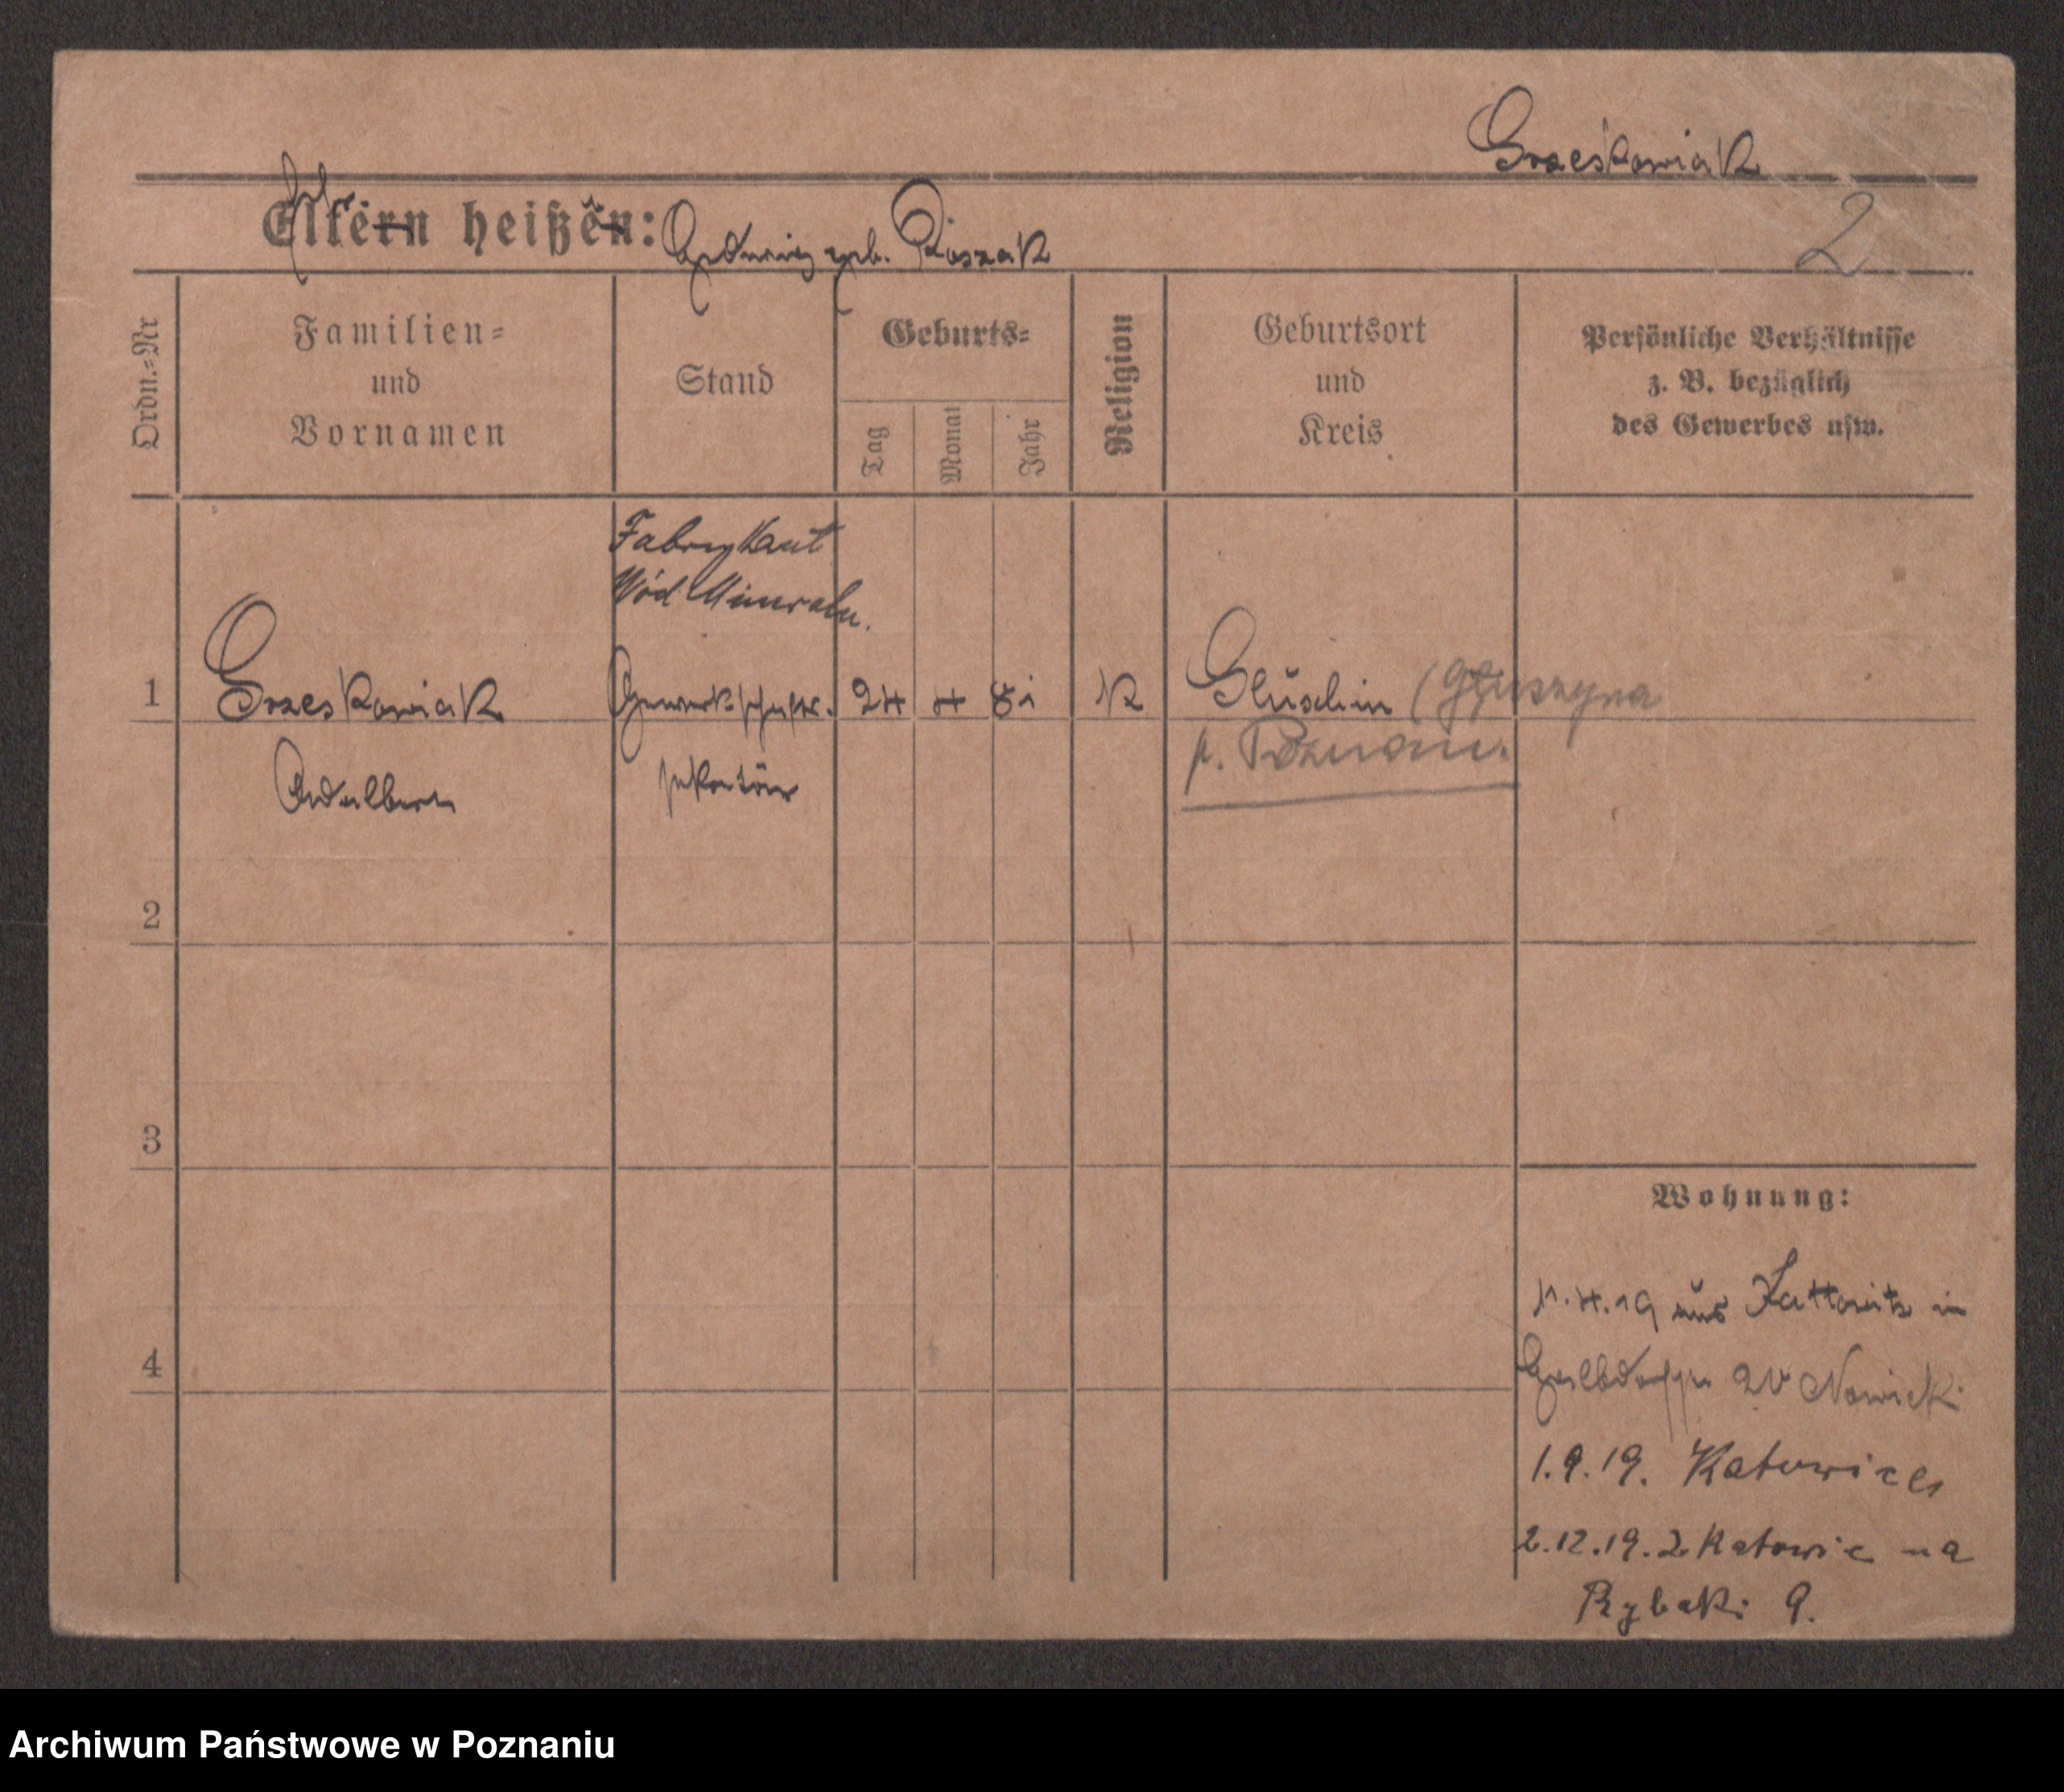 Grzeskowiak
Eltern heißen: Hedwig geb. Ptaszak
2
Ordn.=Nr
Familien=
und
Vornamen
Stand
Geburts=
Tag
Monat
Jahr
Religion
Geburtsort
und
Kreis
Persönliche Verhältnisse
z. B. bezüglich
des Gewerbes usw.
Fabrykant
Wód Mineraln.
1 Grzeskowiak Gewerkschafts. 24 4 81 K Gluschin (Głuszyna
Adalbert sekretär p. Poznaniu.
2
3
Wohnung:
11.4.19 aus Kattowitz in
4
Halbdorfstr Nowicki
1.9.19. Katowice
2.12.19. z Katowic na
Rybaki 9.
Archiwum Państwowe w Poznaniu